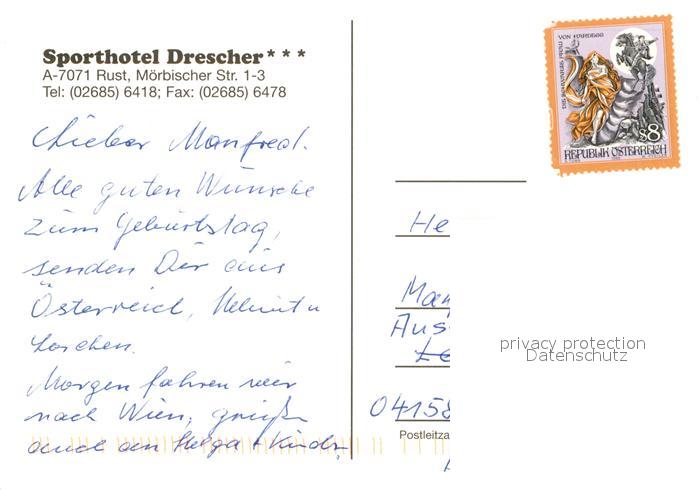 Sporthotel Drescher***
A-7071 Rust, Mörbischer Str. 1-3
Tel: (02685) 6418; Fax: (02685) 6478
Lieber Manfred!
Alle guten Wünsche
zum Geburtstag,
senden Dir aus
Österreich, Helmut u
Lorchen.
Morgen fahren wir
nach Wien, grüße
auch an Helga + Kinder
VON HARDEGG
8
REPUBLIK ÖSTERREICH
He
Man
Aus
04158
Postleitza
privacy protection
Datenschutz